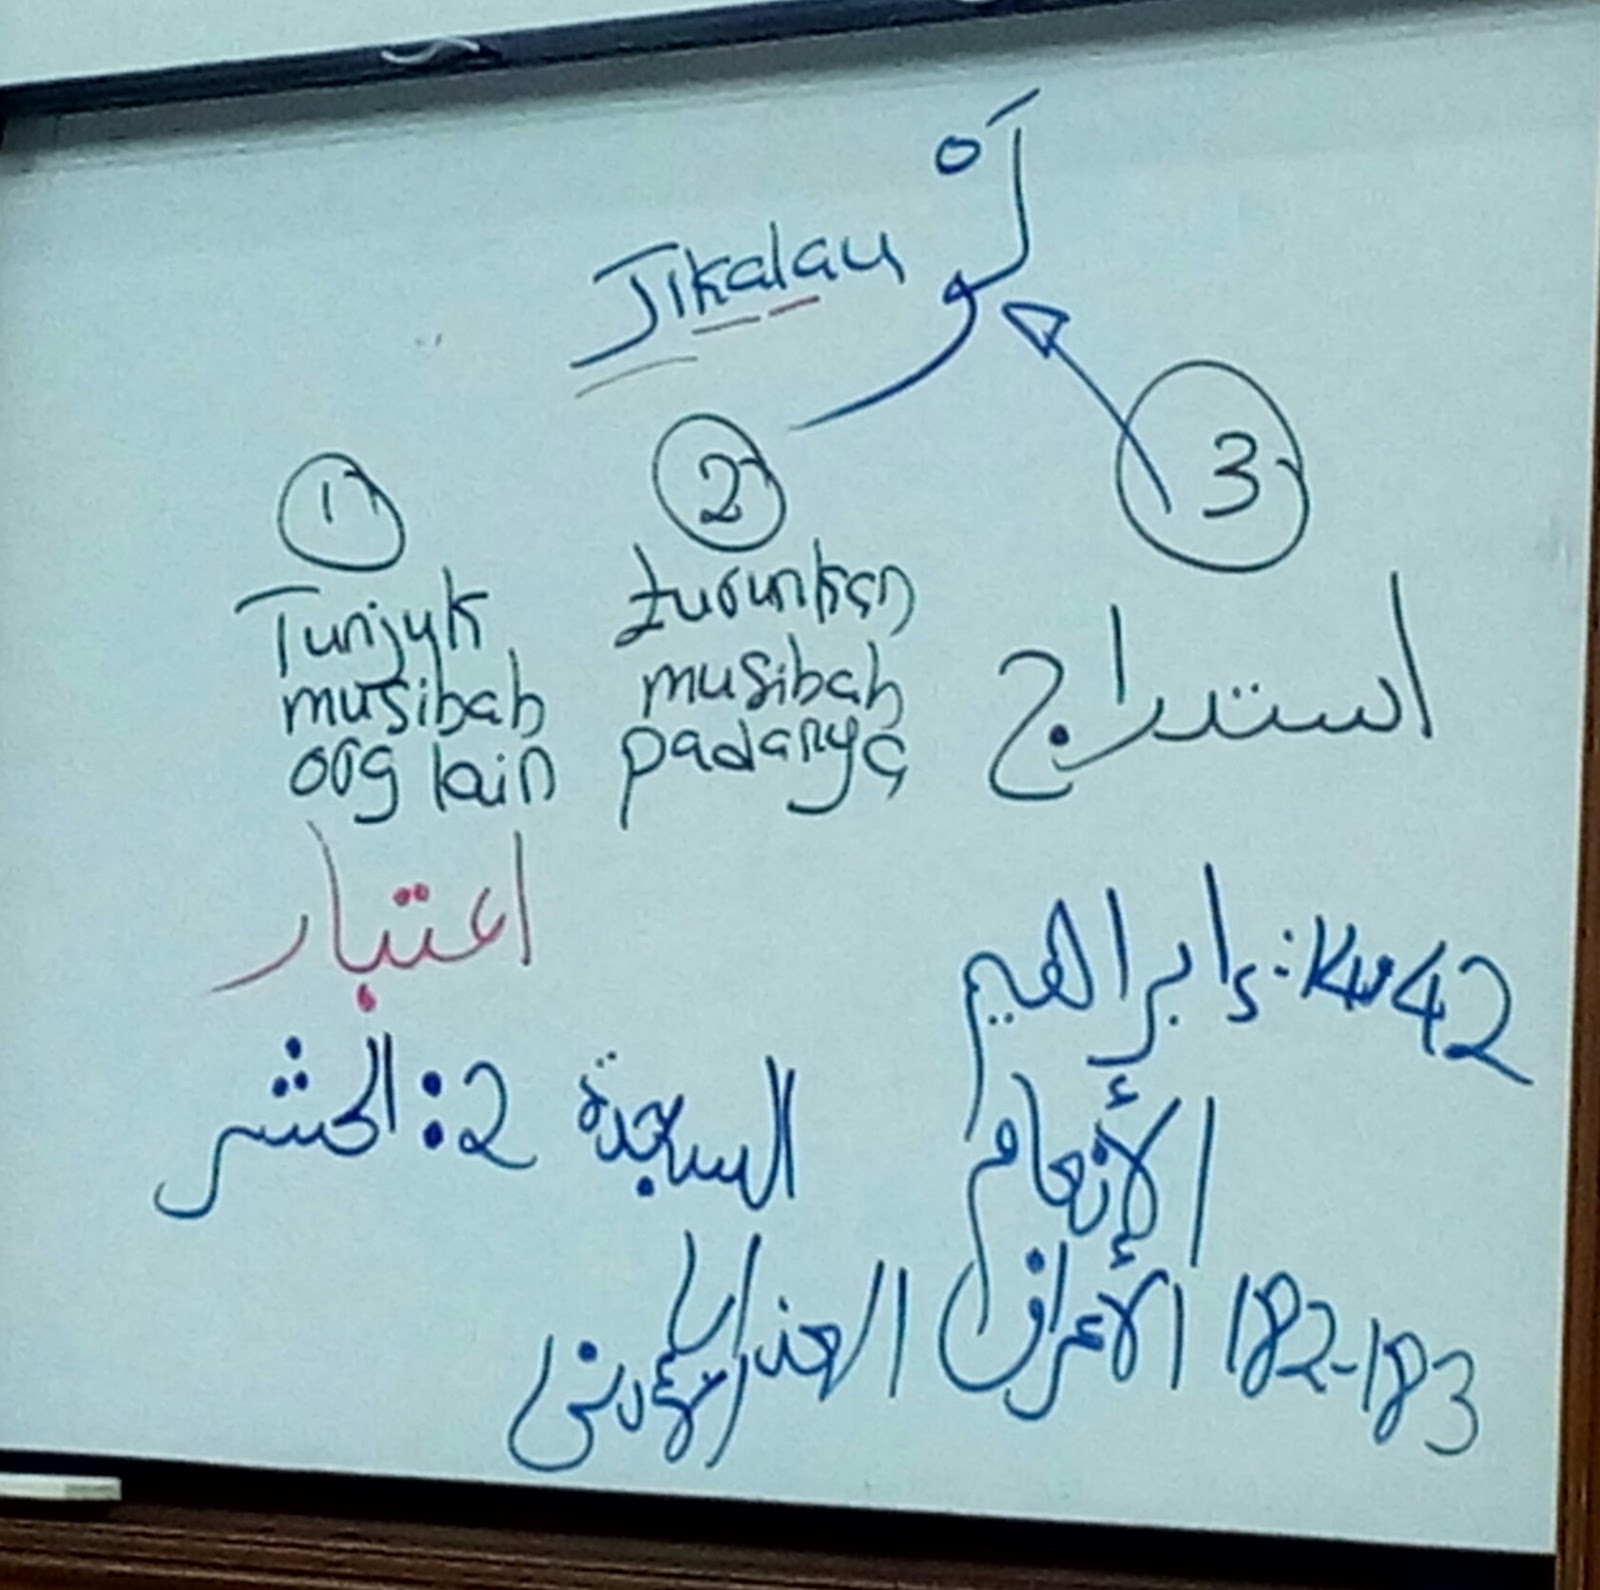 Jikalau لَوْ
1
Tunjuk
musibah
org lain
اعتبار
الحشر : 2
2
turunkan
musibah
padanya
السجدة
العذاب الأدنى
3
استدراج
إبراهيم : 42
الأنعام
الأعراف 182-183